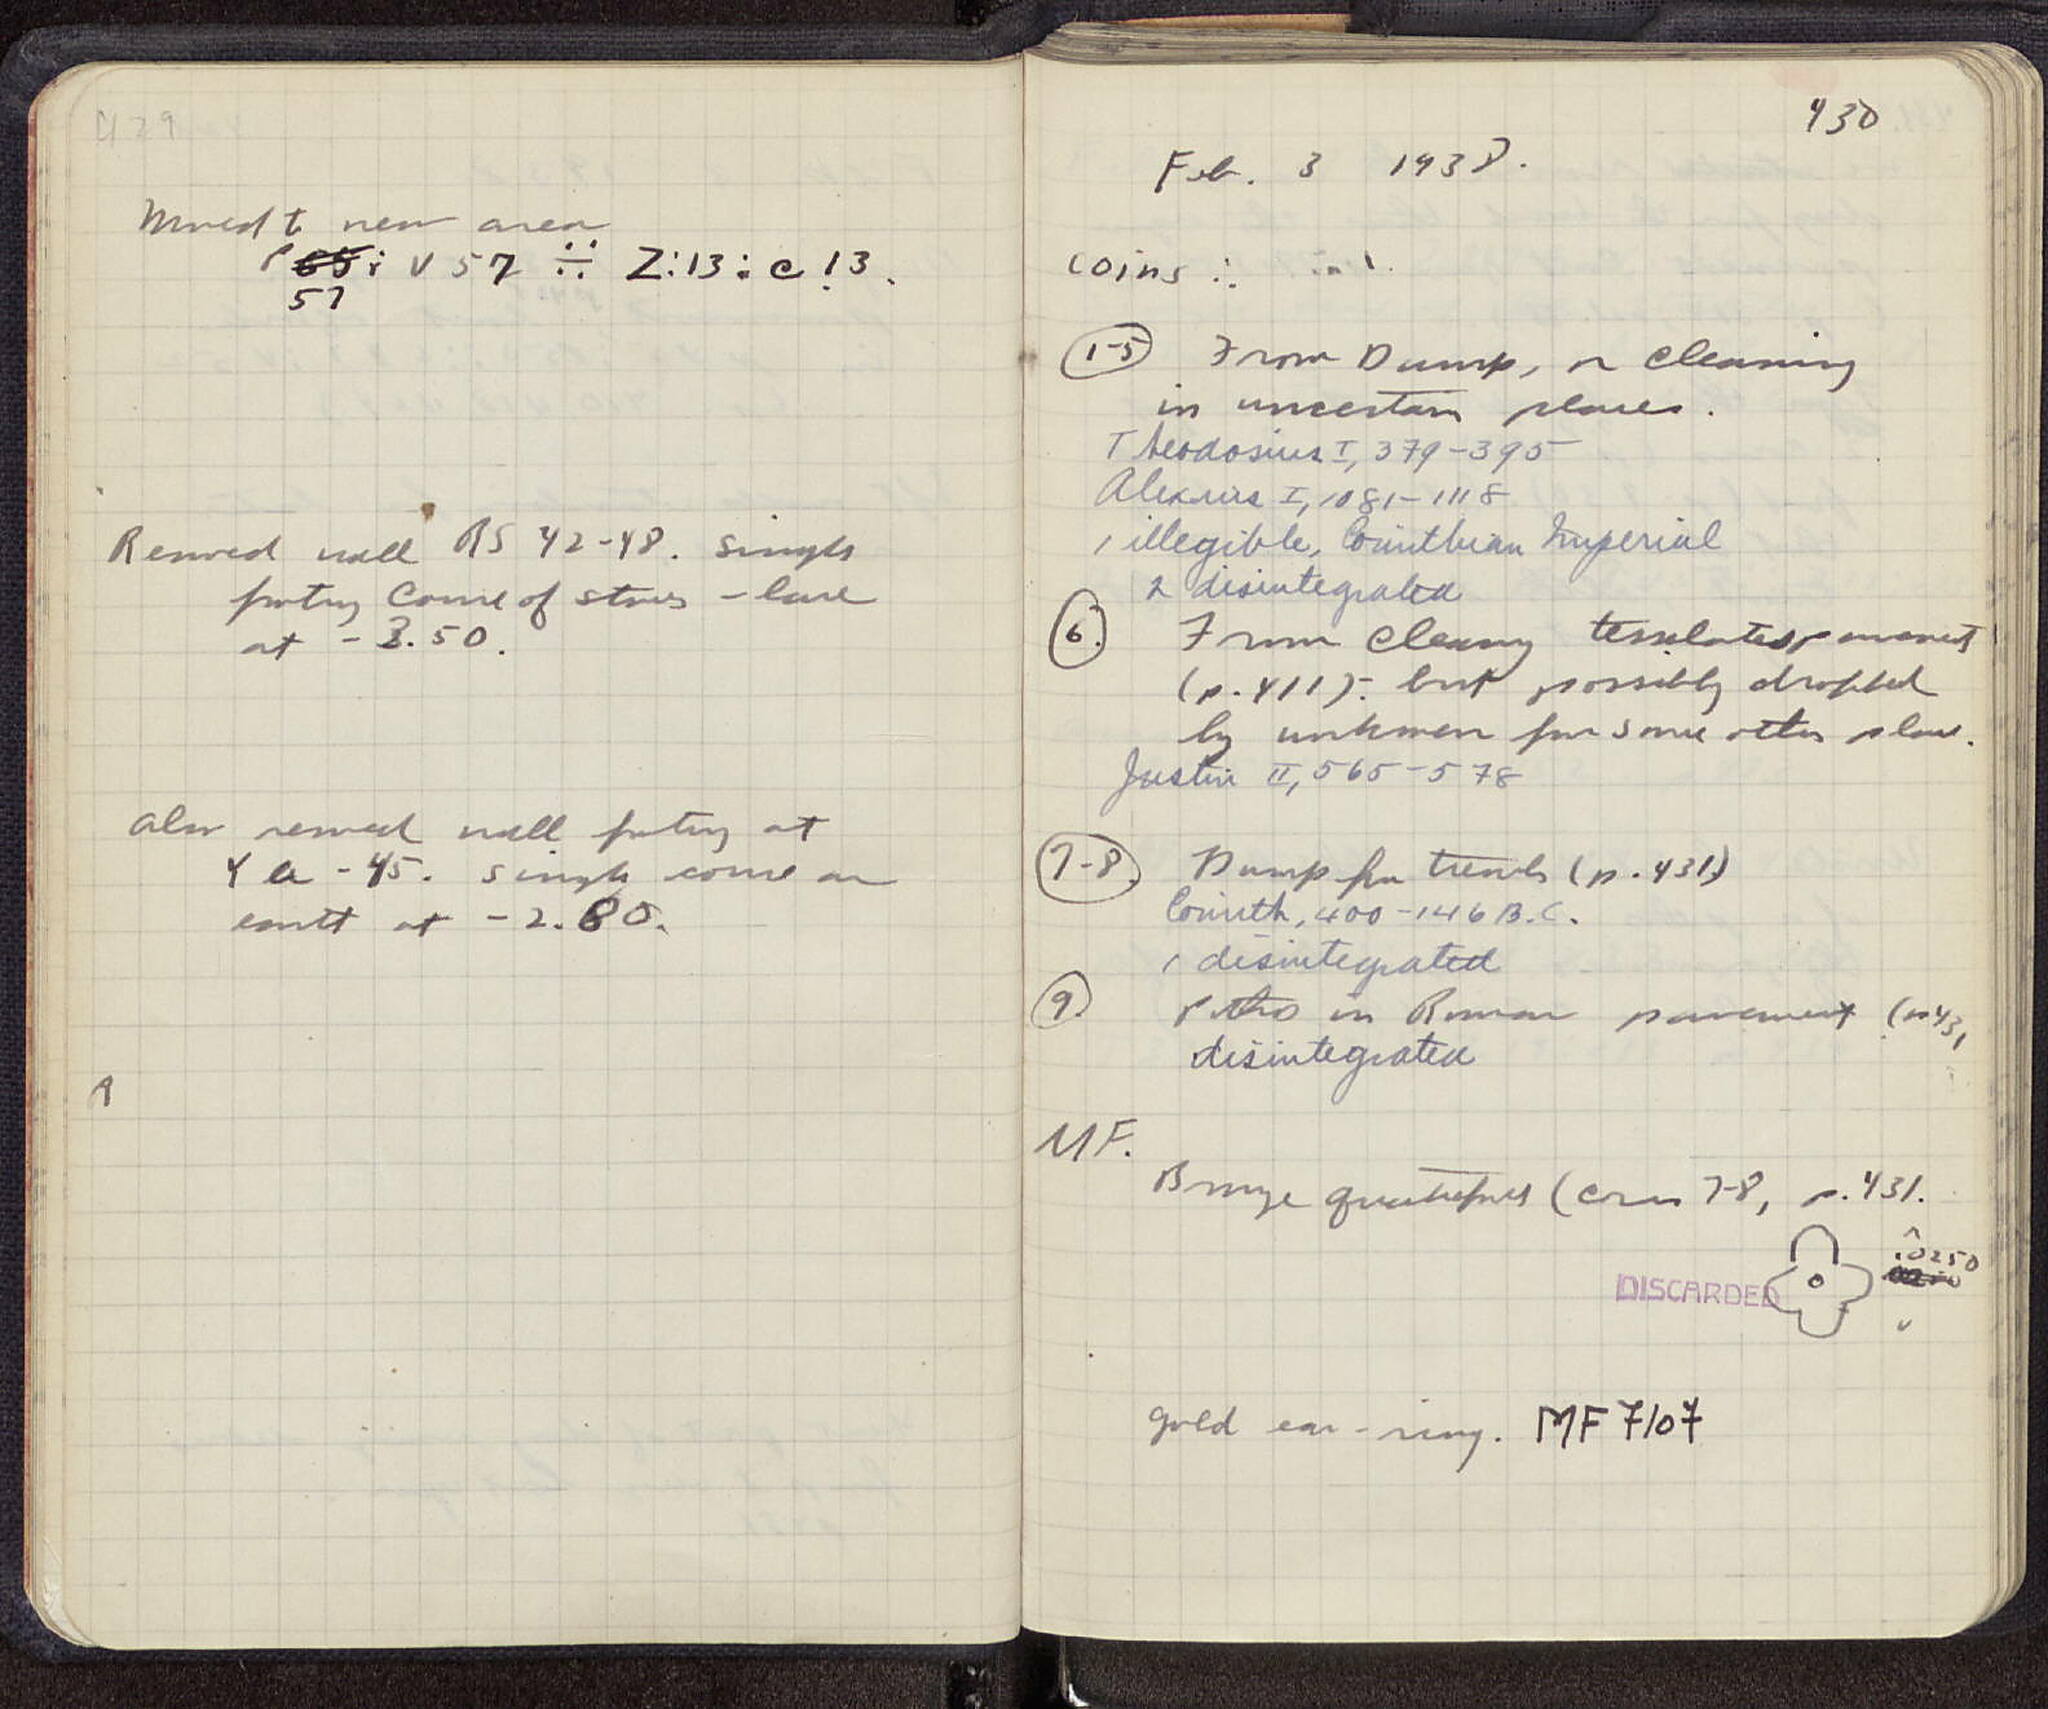 429
Moved to new area
P 65 : V 57 ÷ Z:13 : C 13.
57
Removed wall RS 42-48. Single
footing course of stones - base
at - 3.50.
Also removed wall footing at
Y a - 45. Single course on
earth at - 2.80.
430
Feb. 3 1938.
Coins :.
1-5 From Dump, or cleaning
in uncertain places.
Theodosius I, 379-395
Alexius I, 1081-1118
1 illegible, Corinthian Imperial
2 disintegrated
6. From cleaning tesselated pavement
(p. 411): but possibly dropped
by workmen from some other place.
Justin II, 565-578
7-8. Dump from trench (p. 431)
Corinth, 400-146 B.C.
1 disintegrated
9. Pithos in Roman pavement (p 431
disintegrated
MF.
Bronze quatrefoil (coins 7-8, p. 431.
.0250
DISCARDED
gold ear-ring. MF 7107